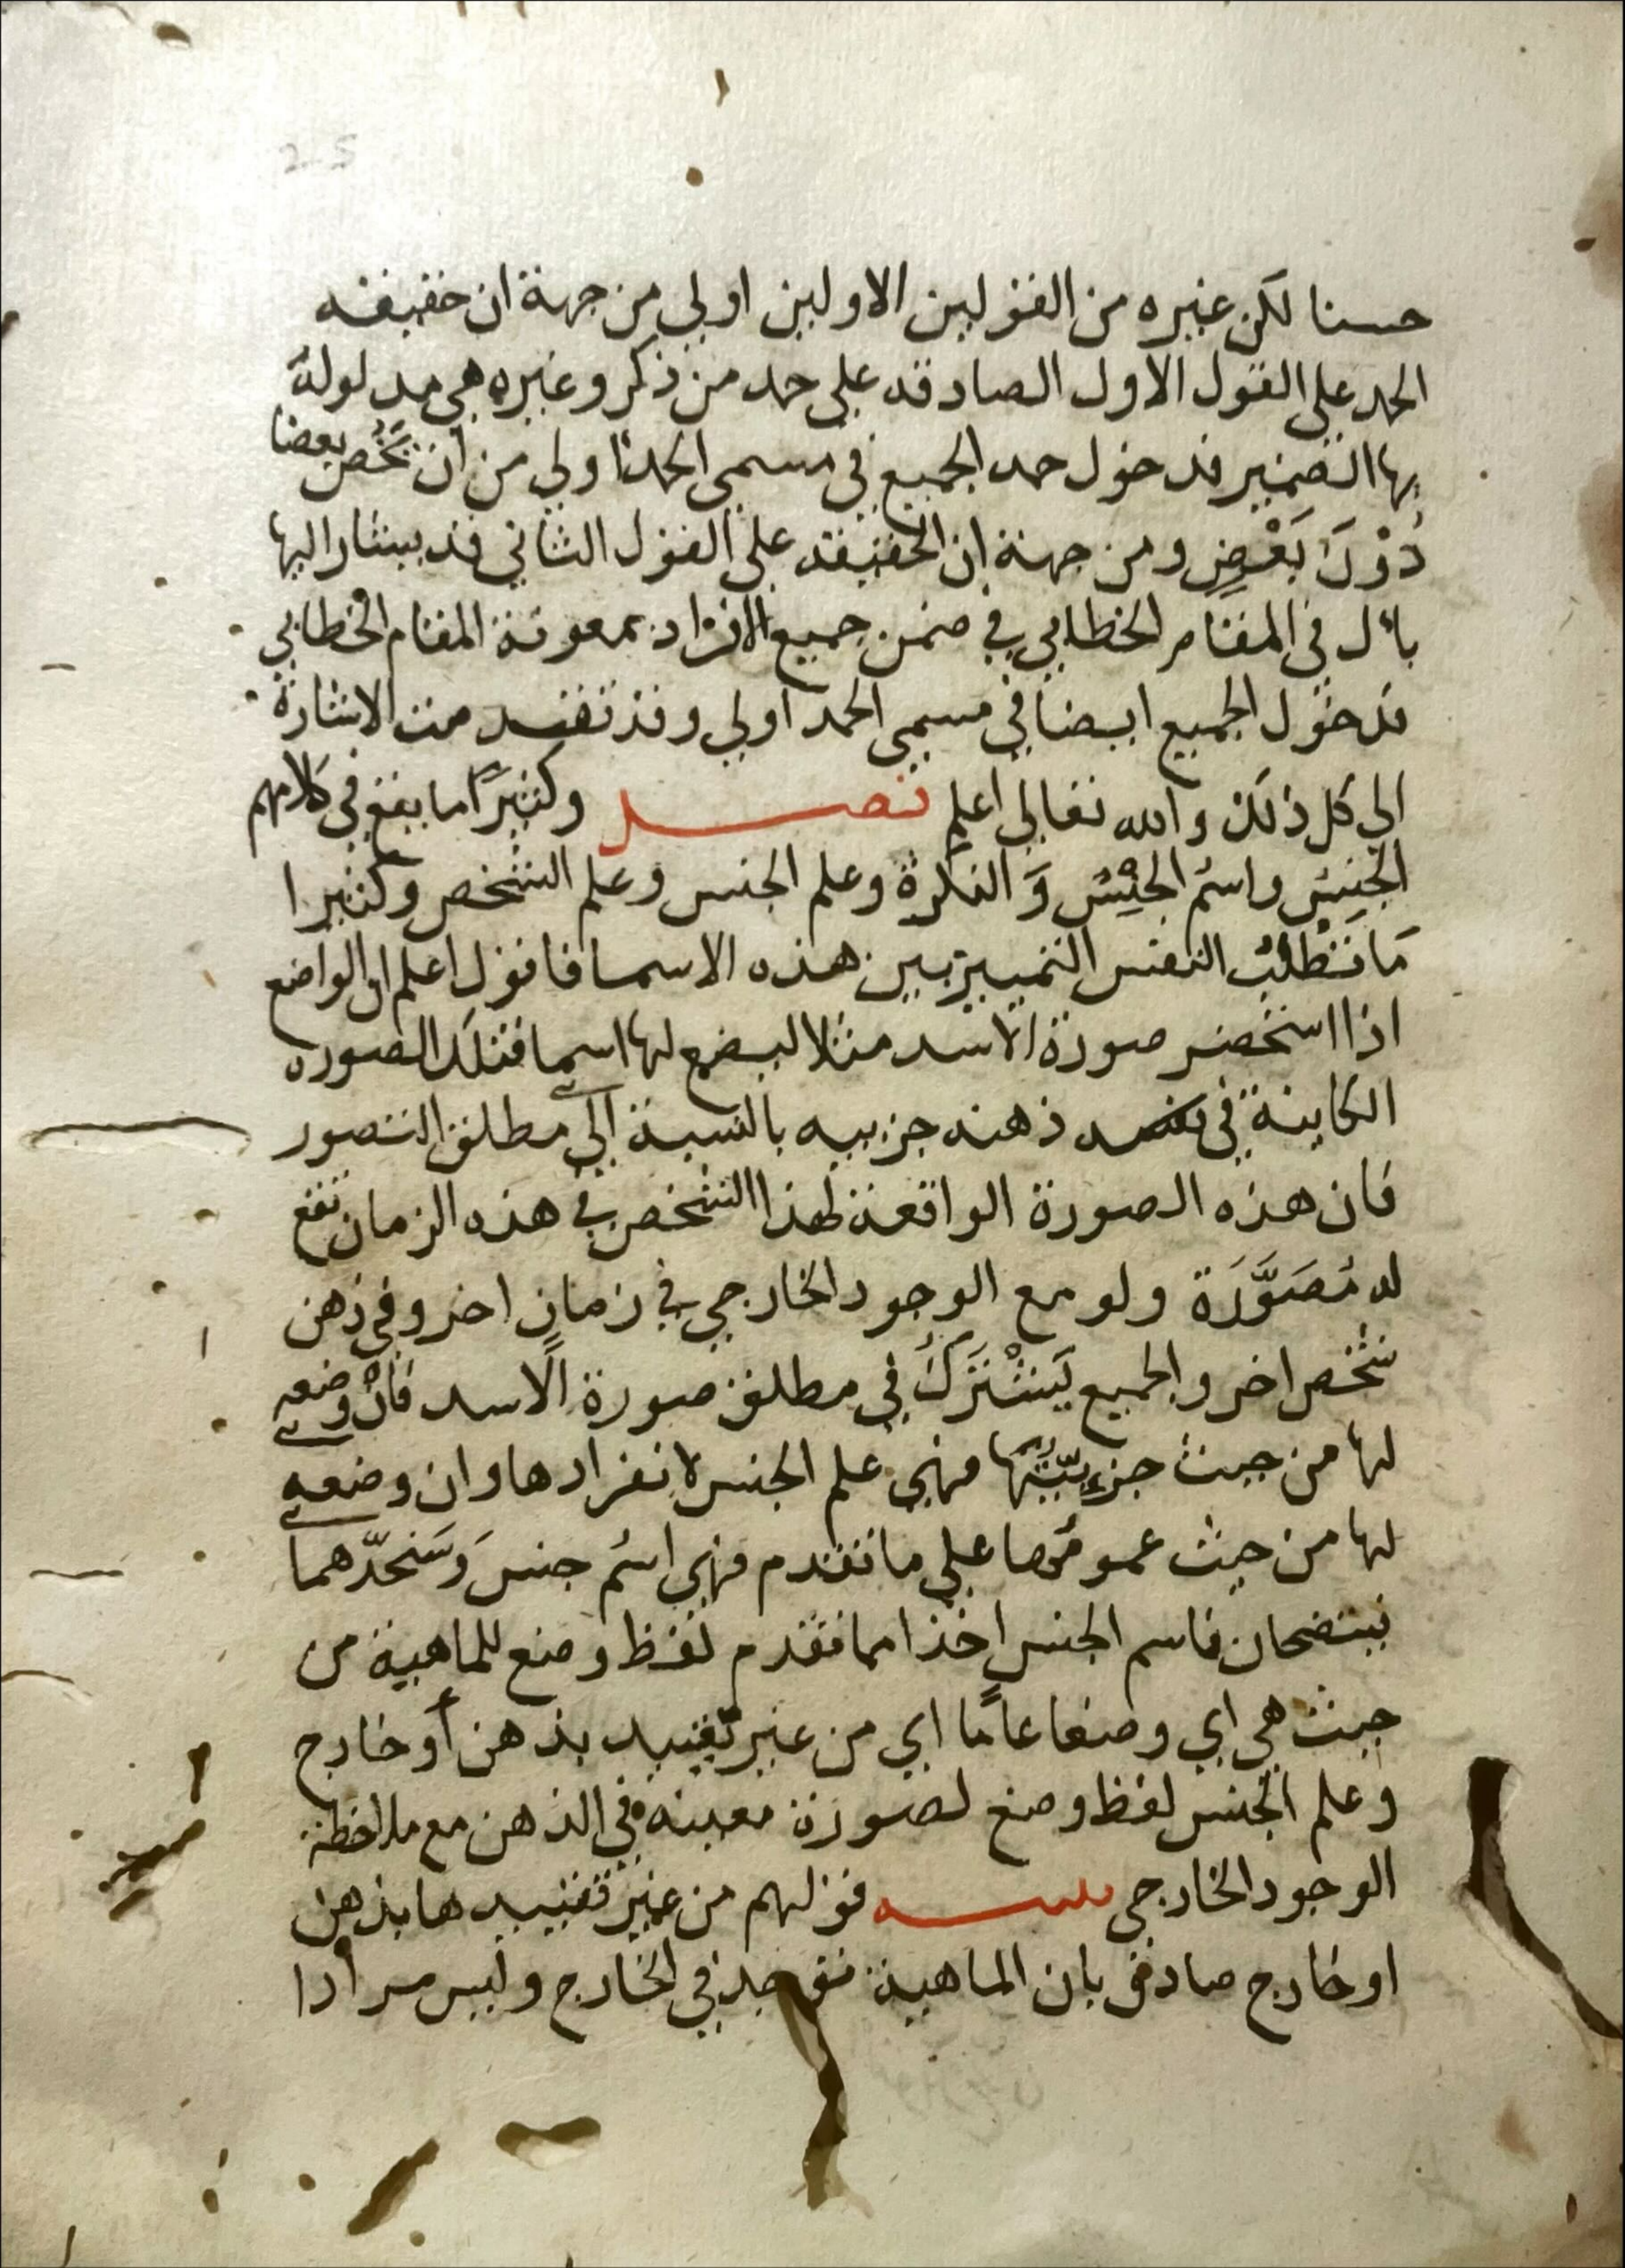 25
حسنا لكن غيره من القولين الاولين اولي من جهة ان حقيقه
الحمد على القول الاول الصادقه على حمد من ذكر وغيره هي مدلولة
بها الضمير فدخول حمد الجميع في مسمي الحمد اولي من ان يخُص بعضا
دُوْنَ بَعْضٍ ومن جهة ان الحقيقه على القول الثاني قد يشار اليها
بأل في المقام الخطابي في ضمن جميع الافراد بمعونة المقام الخطابي
فدخول الجميع ايضا في مسمي الحمد اولي وقد تقدمت الاشارة
الي كل ذلك والله تعالي اعلم فصل وكثيرًا ما يقع في كلامهم
الجنس واسْم الجنْسُ وَ النكرة وعلم الجنس وعلم الشخص وكثيرا
مَا تَطْلُبُ النفس التمييز بين هذه الاسما فاقول اعلم ان الواضع
اذا استحضر صورة الاسد مثلا ليضع لها اسما فتلك الصوره
الكاينة في ذهنه جزييه بالنسبة الي مطلق التصور
فان هذه الصورة الواقعة لهذا الشخص في هذه الزمان تقع
له مُصَوَّرَة ولو مع الوجود الخارجي في زمان اخر وفي ذهن
شخص اخر والجميع يَشْتَرَكُ في مطلق صورة الاسد فانْ وضعه
لها من حيث جزءيّتُها فهي علم الجنس لانفرادها وان وضعه
لها من حيث عمومُها على ما تقدم فهي اسْم جنس وَسَنحدّهما
فيتضحان فاسم الجنس اخذا مما تقدم لفظ وضع للماهية من
حيث هي اي وضعا عامًا اي من غير تقييد بذهن أو خارج
وعلم الجنس لفظ وضع لصورة معينه في الذهن مع ملاحظة
الوجود الخارجي تنبيه قولهم من غير تقييدها بذهن
او خارج صادق بان الماهية توجد في الخارج وليس مرادا